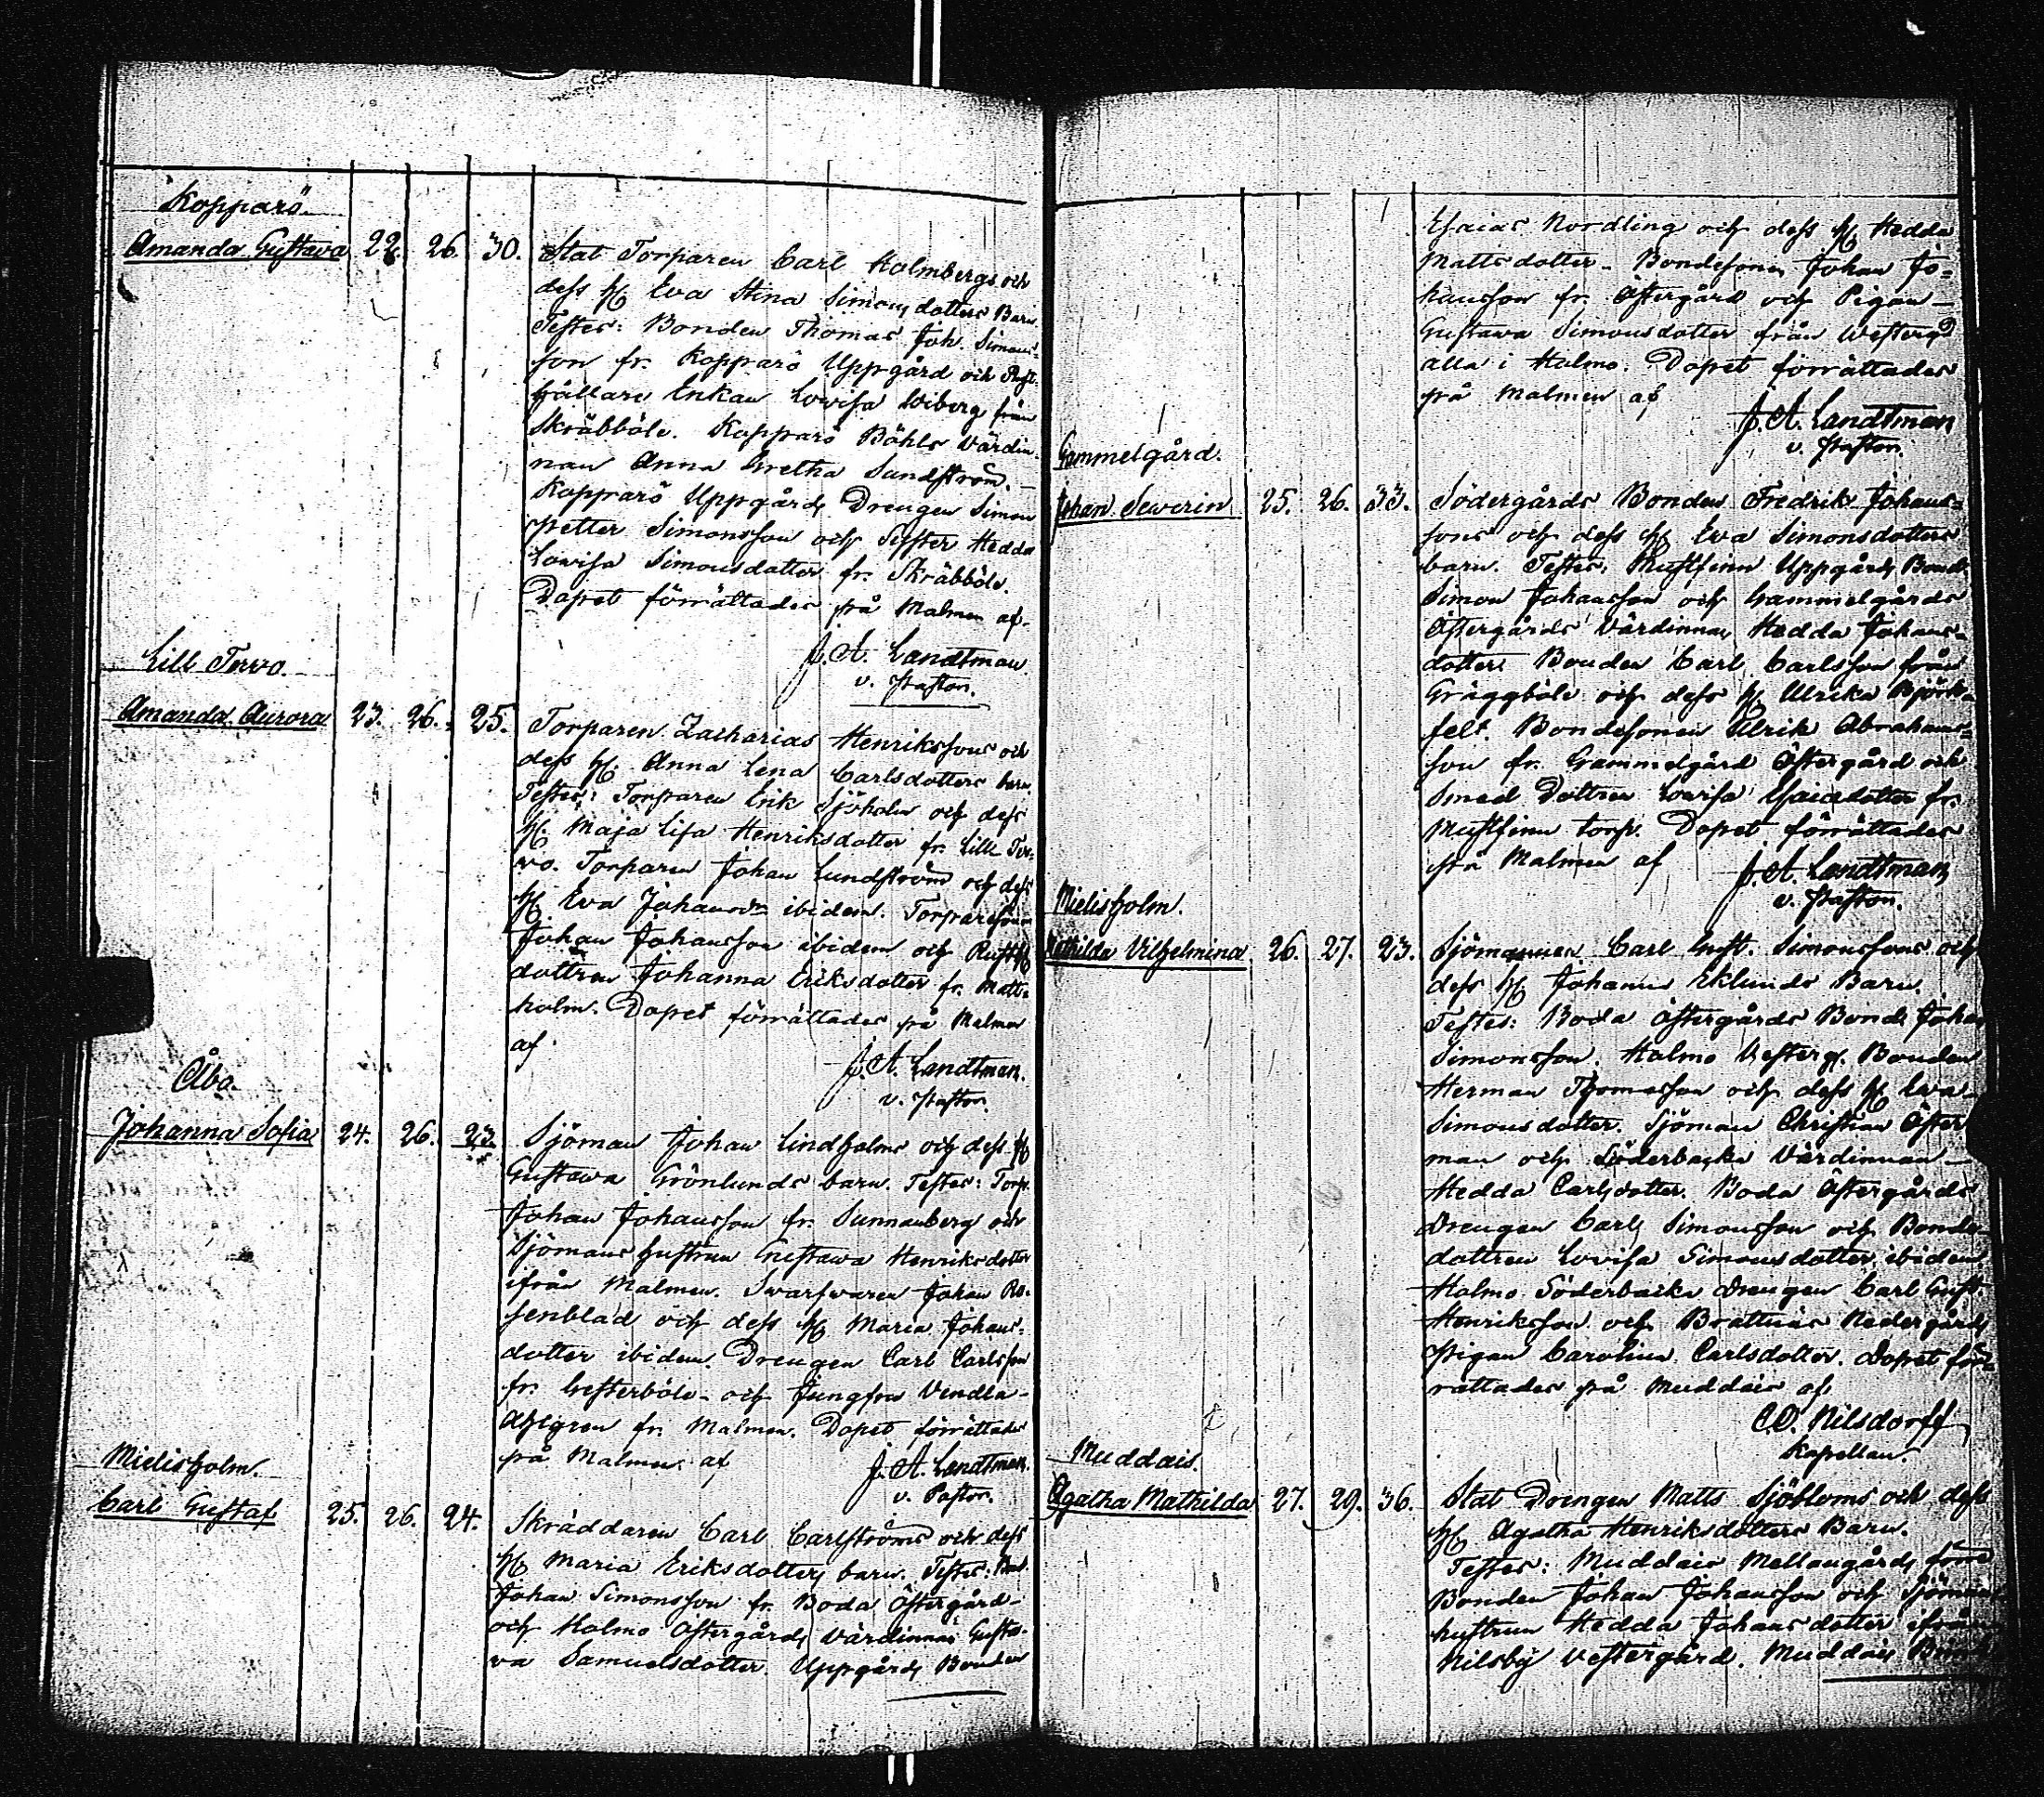 Kopparö.
Amanda Gustava 22. 26. 30. Stat Torparen Carl Holmbergs och
dess H. Eva Stina Simonsdotters Barn.
Testes: Bonden Thomas Joh. Simons-
son fr. Kopparö Uppgård och Rust-
hållare Enkan Lovisa Wiberg från
Skräbböle. Kopparö Böhls Värdin-
nan Anna Gretha Sundström. –
Kopparö Uppgårds Drengen Simon
Petter Simonsson och Syster Hedda
Lovisa Simonsdotter fr. Skräbböle.
Dopet förrättades på Malmen af.
J. A. Landtman
v. Pastor.
Lill Tervo.
Amanda Aurora 23. 26. 25. Torparen Zacharias Henrikssons och
dess H. Anna Lena Carlsdotters barn.
Testes: Torparen Erik Sjöholm och dess
H. Maja Lisa Henriksdotter fr. Lill Ter-
vo. Torparen Johan Lundström och dess
H. Eva Johansdr ibidem. Torparesonen
Johan Johansson ibidem och Rusth.
dottren Johanna Eriksdotter fr. Matt-
holm. Dopet förrättades på Malmen
af.
J. A. Landtman.
v. Pastor.
Åbo.
Johanna Sofia 24. 26. 23. Sjöman Johan Lindholms och dess H
Gustava Grönlunds barn. Testes: Torp.
Johan Johansson fr. Sunnanberg och
Sjömans hustrun Gustava Henriksdotter
ifrån Malmen. Svarfvaren Johan Ro-
senblad och dess H. Maria Johans-
dotter ibidem. Drengen Carl Carlsson
fr. Gesterböle – och Jungfru Vendla –
Ahlgren fr. Malmen. Dopet förrättades
på Malmen af
J. A. Landtman.
v. Pastor.
Mielisholm.
Carl Gustaf 25. 26. 24. Skräddaren Carl Carlströms och dess
H. Maria Eriksdotters barn. Testes: Bond.
Johan Simonsson fr. Boda Östergård –
och Holmo Östergårds Värdinnan Gusta-
va Samuelsdotter. Uppgårds Bonden
Esaias Nordling och dess H. Hedda
Mattsdotter – Bondesonen Johan Jo-
hansson fr. Östergård och Pigan –
Gustava Simonsdotter från Westergd
alla i Holmo. Dopet förrättades
på Malmen af
J. A. Landtman
v. Pastor.
Gammelgård.
Johan Severin 25. 26. 33. Södergårds Bonden Fredrik Johans-
sons och dess H. Eva Simonsdotters
barn. Testes: Mustfinn Uppgårds Bond.
Simon Johansson och Gammelgårds
Östergårds Värdinnan Hedda Johans-
dotter. Bonden Carl Carlsson från
Gräggböle och dess H. Ulrika Björk-
felt. Bondesonen Ulrik Abrahams-
son fr. Gammelgård Östergård och
Smed Dottren Lovisa Esaiadotter fr.
Mustfinn torp. Dopet förrättades
på Malmen af
J. A. Landtman
v. Pastor.
Mielisholm.
Mathilda Vilhelmina 26. 27. 23. Sjömannen Carl Gust. Simonssons och
dess H. Johanna Eklunds Barn.
Testes: Boda Östergårds Bond. Johan
Simonsson. Holmo Vesterg. Bonden
Herman Thomasson och dess H. Eva
Simonsdotter. Sjöman Christian Öster
man och Söderbacka Värdinnan –
Hedda Carlsdotter. Boda Östergårds
Drengen Carl Simonsson och Bonde
dottren Lovisa Simonsdotter ibidem
Holmo Söderbacka Drengen Carl Gust.
Henriksson och Brattnäs Nedergårds
Pigan Carolina Carlsdotter. Dopet för-
rättades på Muddais af
C. O. Nilsdorff
Kapellan.
Muddais.
Agatha Mathilda 27. 29. 36. Stat Drengen Matts Sjöbloms och dess
H. Agatha Henriksdotters Barn.
Testes: Muddais Mellangårds förre
Bonden Johan Johansson och Sjömans
hustrun Hedda Johansdotter ifrån
Nilsby Vestergård. Muddais